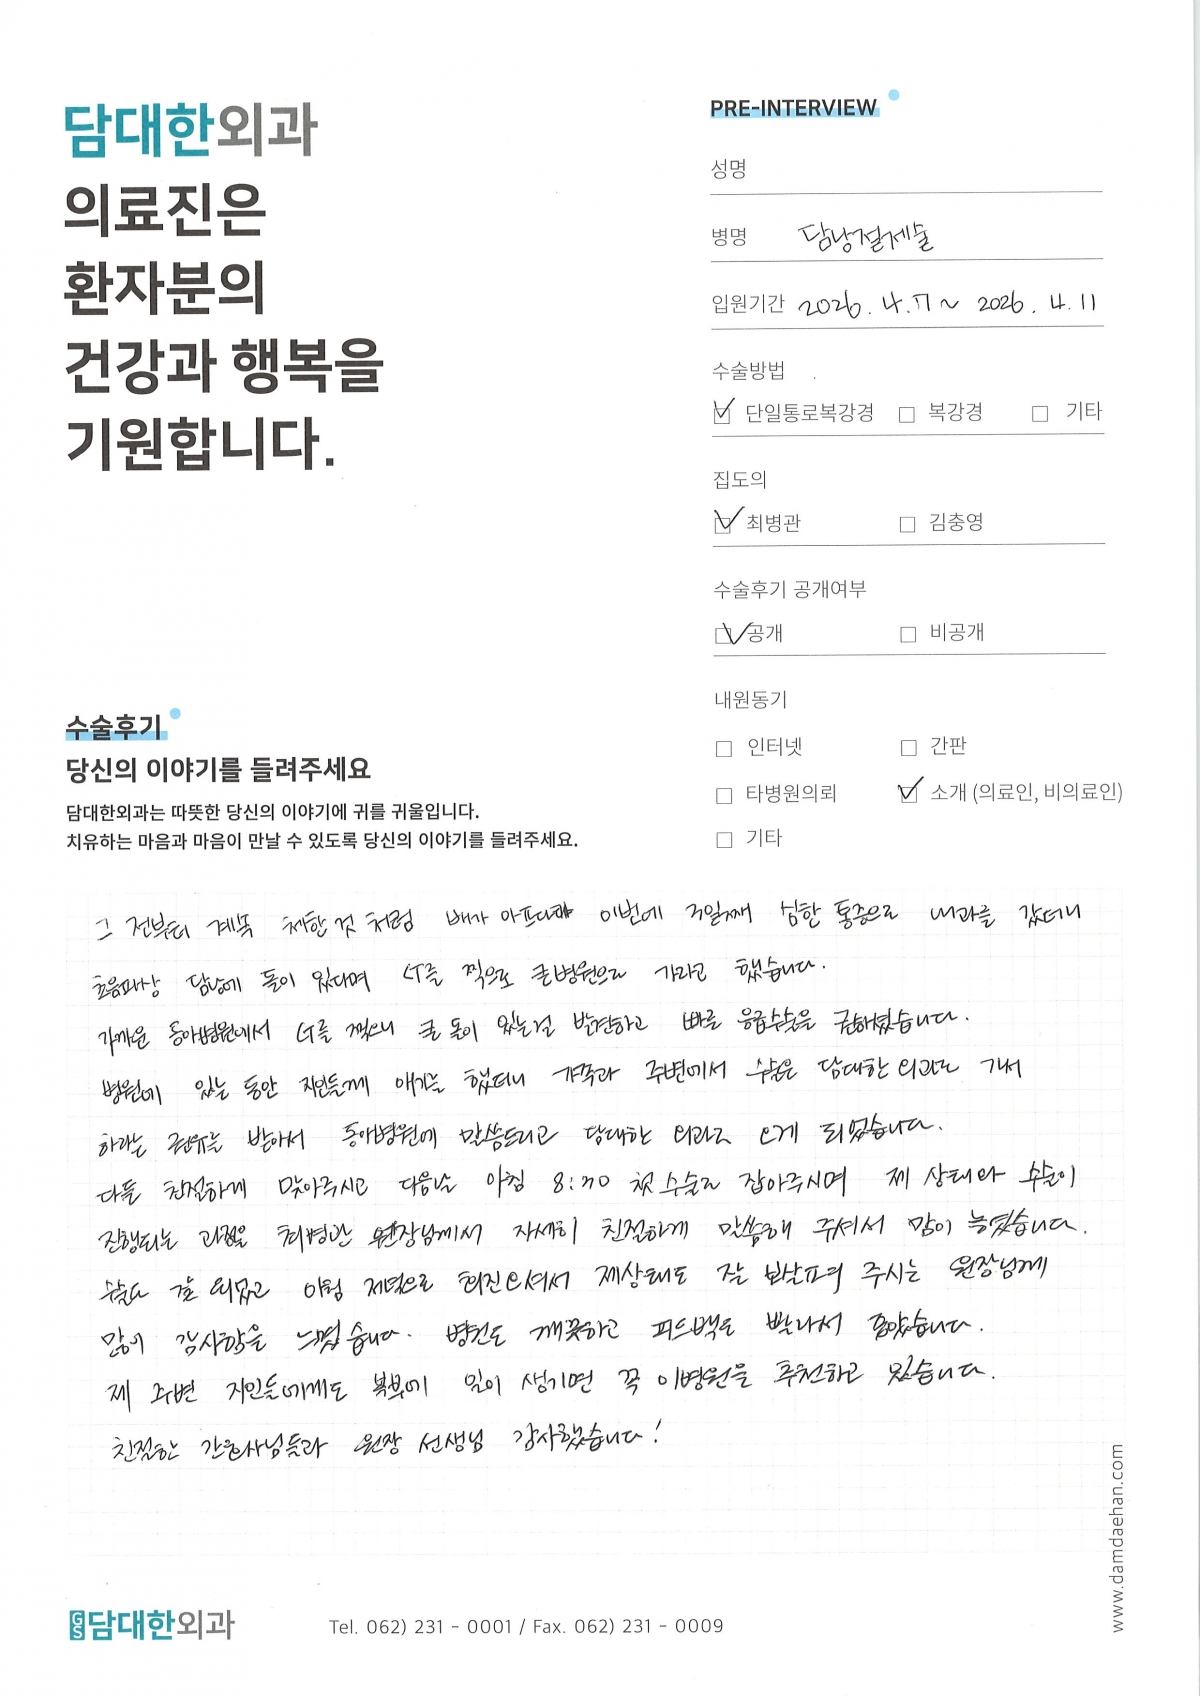 담대한외과
의료진은
환자분의
건강과 행복을
기원합니다.
PRE-INTERVIEW
성명
병명 담낭절제술
입원기간 2026. 4. 7 ~ 2026. 4. 11
수술방법
단일통로복강경 복강경 기타
집도의
최병관 김충영
수술후기 공개여부
공개 비공개
내원동기
인터넷 간판
타병원의뢰 소개 (의료인, 비의료인)
기타
수술후기
당신의 이야기를 들려주세요
담대한외과는 따뜻한 당신의 이야기에 귀를 귀울입니다.
치유하는 마음과 마음이 만날 수 있도록 당신의 이야기를 들려주세요.
그 전부터 계속 체한 것 처럼 배가 아프다가 이번에 3일째 심한 통증으로 내과를 갔더니
초음파상 담낭에 돌이 있다며 CT를 찍으로 큰병원으로 가라고 했습니다.
가까운 동아병원에서 CT를 찍으니 큰 돌이 있는걸 발견하고 빠른 응급수술을 권해줬습니다.
병원에 있는 동안 지인들께 얘기를 했더니 가족과 주변에서 수술은 담대한 외과로 가서
하라는 권유를 받아서 동아병원에 말씀드리고 담대한 외과로 오게 되었습니다.
다들 친절하게 맞아주시고 다음날 아침 8:20 첫 수술로 잡아주시며 제 상태와 수술이
진행되는 과정을 최병관 원장님께서 자세히 친절하게 말씀해 주셔서 맘이 놓였습니다.
수술도 잘 되었고 아침 저녁으로 회진오셔서 제상태도 잘 보살펴 주시는 원장님께
많이 감사함을 느꼈습니다. 병원도 깨끗하고 피드백도 빨라서 좋았습니다.
제 주변 지인들에게도 복부에 일이 생기면 꼭 이병원을 추천하고 싶습니다.
친절한 간호사님들과 원장 선생님 감사했습니다!
GS 담대한외과
Tel. 062) 231 - 0001 / Fax. 062) 231 - 0009
www.damdaehan.com